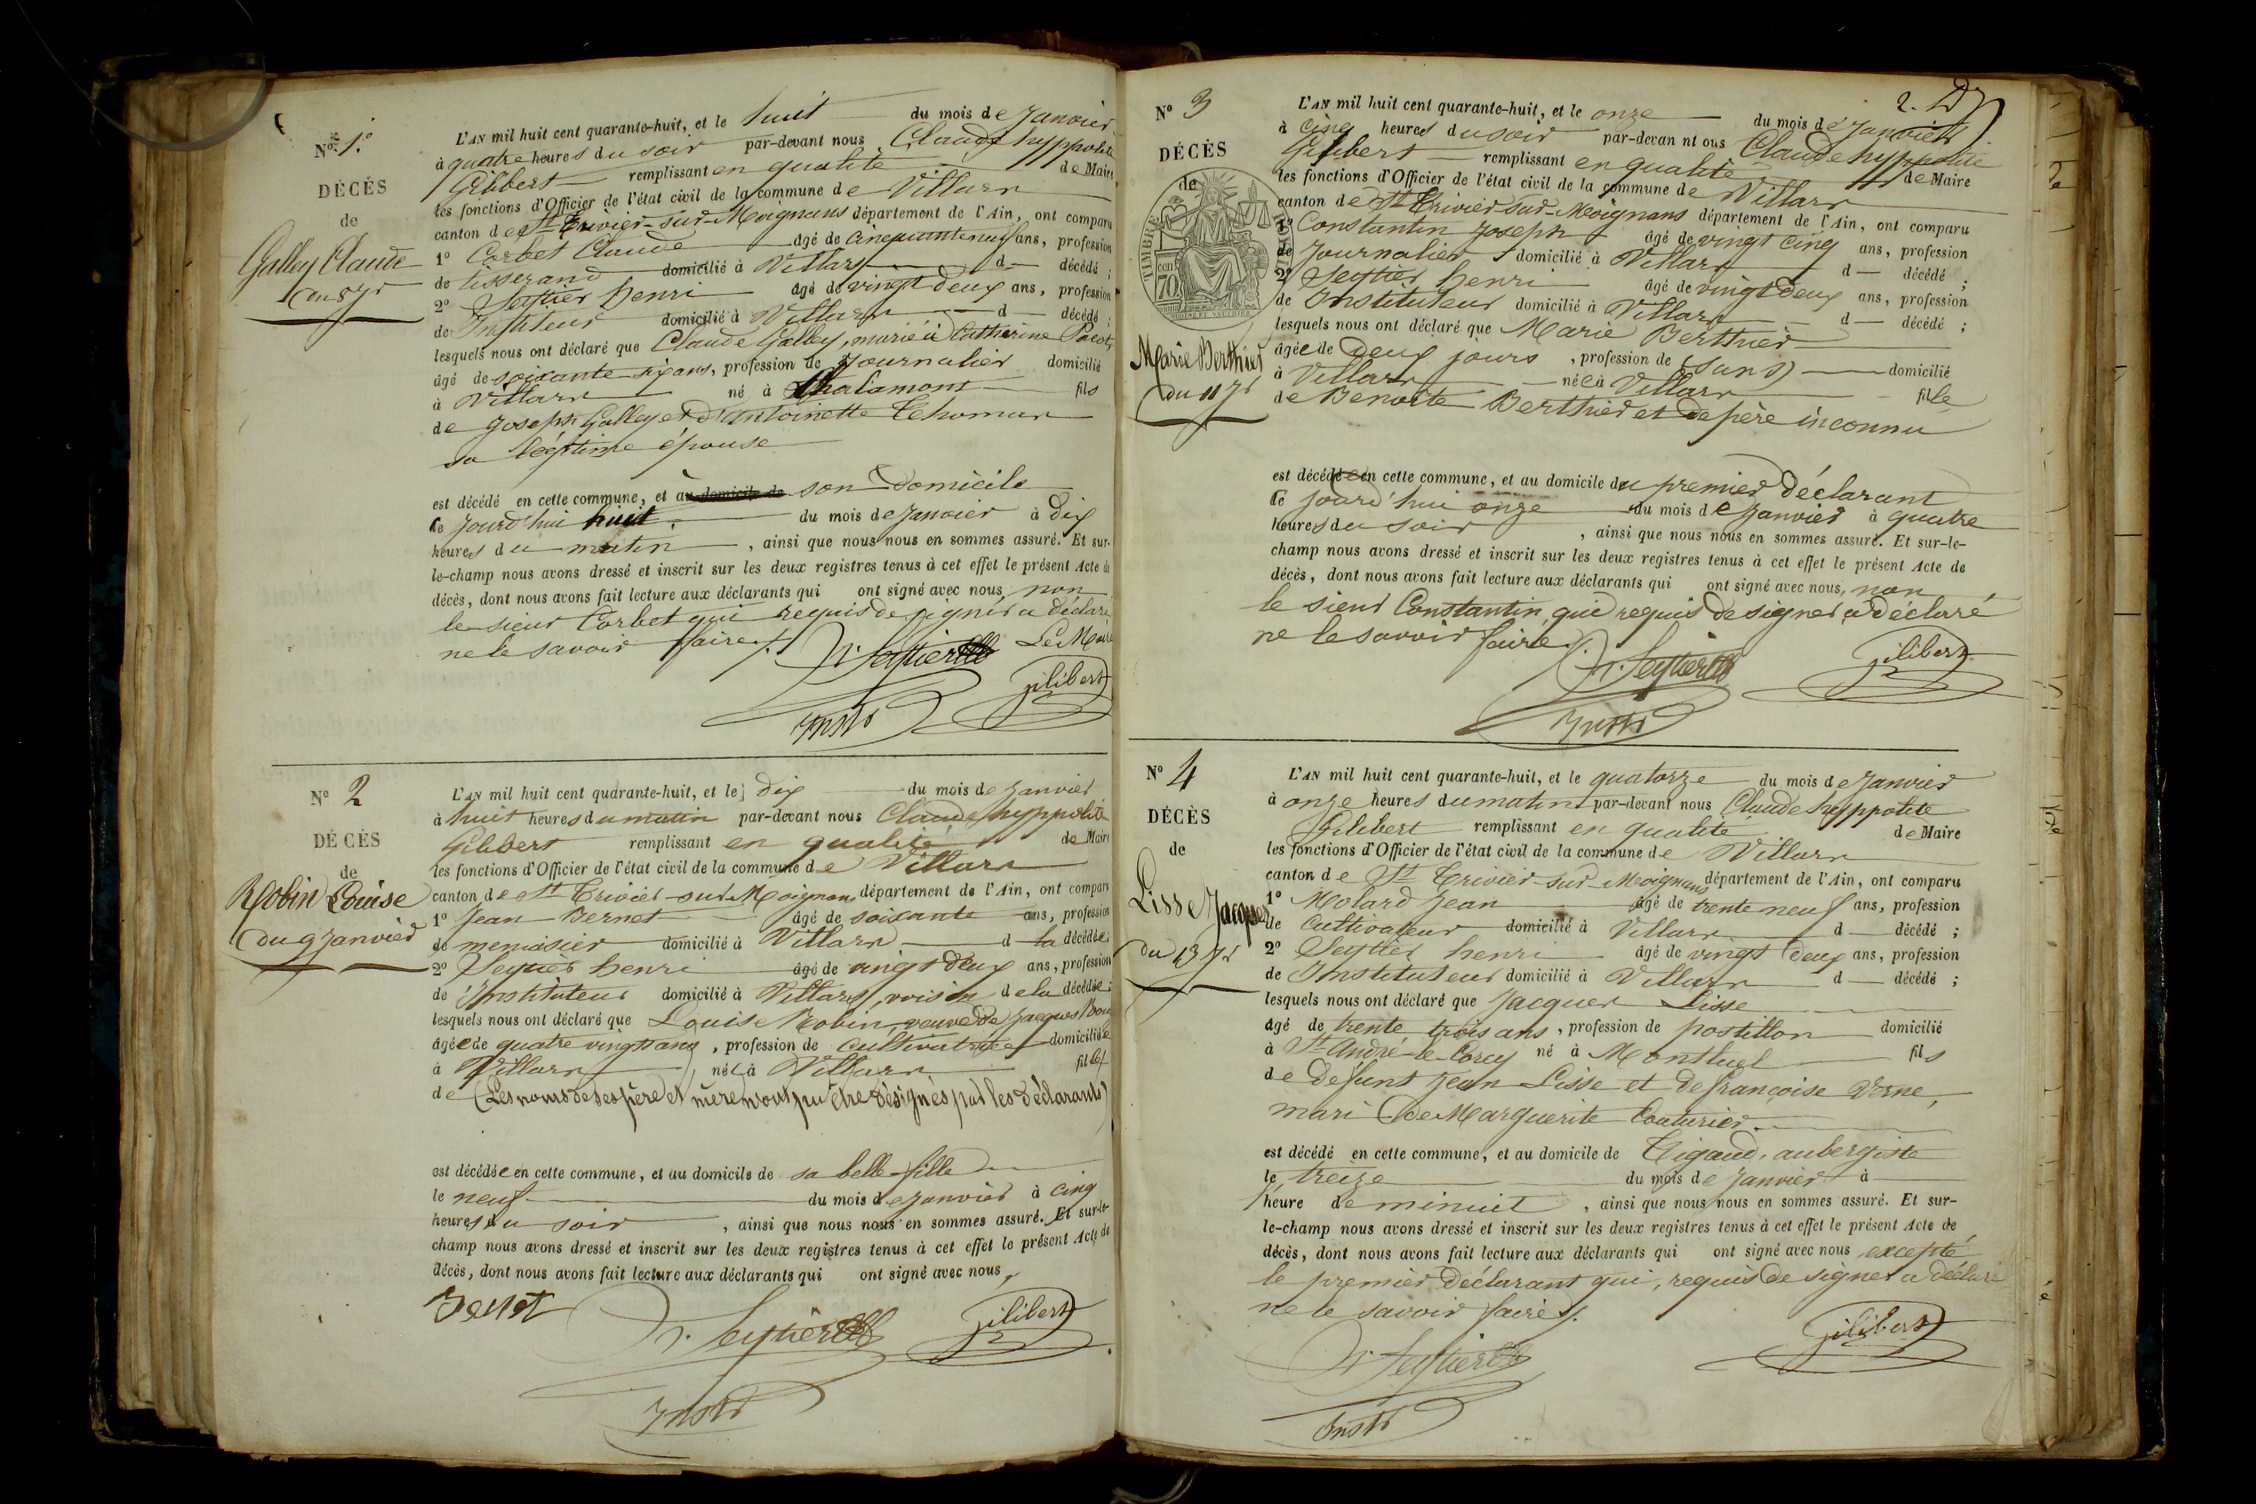 No 1.
DÉCÈS
de
Galley Claude
du 8 Jr
L'AN mil huit cent quarante-huit, et le huit du mois de Janvier
à quatre heures du soir par-devant nous Claude hyppolite
Gilibert remplissant en qualité de Maire
les fonctions d'Officier de l'état civil de la commune de Villars
canton de St Trivier-sur-Moignans département de l'Ain, ont comparu
1o Corbet Claude âgé de cinquante neuf ans, profession
de tisserand domicilié à Villars d décédé ;
2o Seytier henri âgé de vingt deux ans, profession
de Instituteur domicilié à Villars d décédé ;
lesquels nous ont déclaré que Claude Galley, marié à Catherine
âgé de soixante six ans, profession de Journalier domicilié
à Villars né à Chalamont fils
de Joseph Galley et d'Antoinette Thomas
sa légitime épouse
est décédé en cette commune, et au domicile de son Domicile
le jourd'hui huit du mois de Janvier à dix
heures du matin, ainsi que nous nous en sommes assuré. Et sur-
le-champ nous avons dressé et inscrit sur les deux registres tenus à cet effet le présent Acte de
décès, dont nous avons fait lecture aux déclarants qui ont signé avec nous non
le sieur Corbet qui requis de signer a déclaré
ne le savoir faire. Le Maire
h. Seytier Gilibert
Instr
No 2
DÉCÈS
de
Robin Louise
du 9 Janvier
L'AN mil huit cent quarante-huit, et le dix du mois de Janvier
à huit heures du matin par-devant nous Claude hyppolite
Gilibert remplissant en qualité de Maire
les fonctions d'Officier de l'état civil de la commune de Villars
canton de St Trivier-sur-Moignans département de l'Ain, ont comparu
1o Jean Bernet âgé de soixante ans, profession
de menuisier domicilié à Villars d la décédée ;
2o Seytier henri âgé de vingt deux ans, profession
de Instituteur domicilié à Villars, voisin de la décédée ;
lesquels nous ont déclaré que Louise Robin, veuve de Jacques
âgée de quatre vingt ans, profession de cultivatrice domiciliée
à Villars née à Villars fille
de (Les noms de ses père et mère n'ont pu être désignés par les déclarants)
est décédée en cette commune, et au domicile de sa belle-fille
le neuf du mois de Janvier à cinq
heures du soir, ainsi que nous nous en sommes assuré. Et sur-le-
champ nous avons dressé et inscrit sur les deux registres tenus à cet effet le présent Acte de
décès, dont nous avons fait lecture aux déclarants qui ont signé avec nous,
h. Seytier Gilibert
Instr
2.
No 3
DÉCÈS
de
TIMBRE ROYAL
70
Marie Berthier
du 11 Jr
L'AN mil huit cent quarante-huit, et le onze du mois de Janvier
à cinq heures du soir par-devant nous Claude hyppolite
Gilibert remplissant en qualité de Maire
les fonctions d'Officier de l'état civil de la commune de Villars
canton de St Trivier sur-Moignans département de l'Ain, ont comparu
1o Constantin Joseph âgé de vingt cinq ans, profession
de Journalier domicilié à Villars d décédé ;
2o Seytier henri âgé de vingt deux ans, profession
de Instituteur domicilié à Villars d décédé ;
lesquels nous ont déclaré que Marie Berthier
âgée de deux jours, profession de (sans) domicilié
à Villars née à Villars fille
de Benoite Berthier et de père inconnu
est décédée en cette commune, et au domicile du premier déclarant
le jourd'hui onze du mois de Janvier à quatre
heures du soir, ainsi que nous nous en sommes assuré. Et sur-le-
champ nous avons dressé et inscrit sur les deux registres tenus à cet effet le présent Acte de
décès, dont nous avons fait lecture aux déclarants qui ont signé avec nous, non
le sieur Constantin, qui requis de signer, a déclaré
ne le savoir faire.
h. Seytier Gilibert
Instr
No 4
DÉCÈS
de
Lisse Jacques
du 13 Jr
L'AN mil huit cent quarante-huit, et le quatorze du mois de Janvier
à onze heures du matin par-devant nous Claude hyppolite
Gilibert remplissant en qualité de Maire
les fonctions d'Officier de l'état civil de la commune de Villars
canton de St Trivier-sur-Moignans département de l'Ain, ont comparu
1o Molard Jean âgé de trente neuf ans, profession
de Cultivateur domicilié à Villars d décédé ;
2o Seytier henri âgé de vingt deux ans, profession
de Instituteur domicilié à Villars d décédé ;
lesquels nous ont déclaré que Jacques Lisse
âgé de trente trois ans, profession de postillon domicilié
à St André-le-Corcy né à Montluel fils
de défunt Jean Lisse et de françoise Verne,
mari de Marguerite Couturier.
est décédé en cette commune, et au domicile de Tigaud, aubergiste
le treize du mois de Janvier à
heure de minuit, ainsi que nous nous en sommes assuré. Et sur-
le-champ nous avons dressé et inscrit sur les deux registres tenus à cet effet le présent Acte de
décès, dont nous avons fait lecture aux déclarants qui ont signé avec nous excepté
le premier déclarant qui, requis de signer a déclaré
ne le savoir faire.
h. Seytier Gilibert
Instr